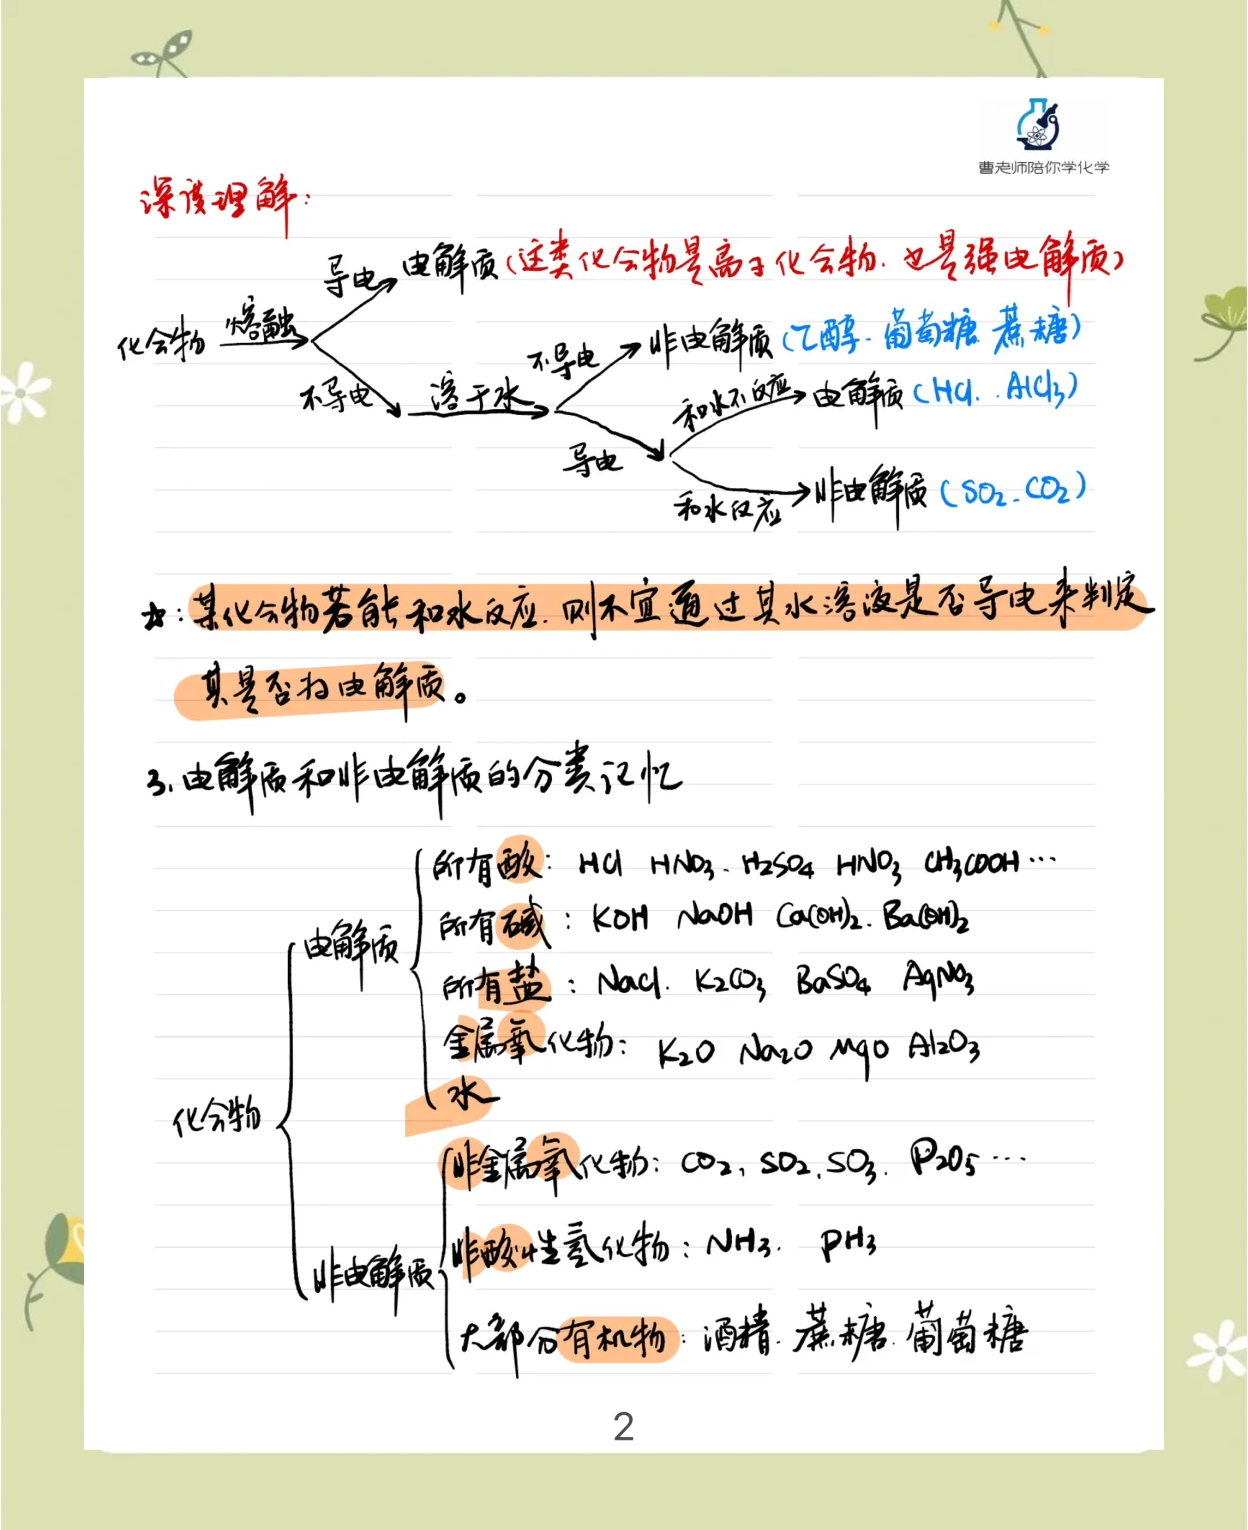 曹老师陪你学化学
深度理解:
导电 电解质(这类化合物是离子化合物.也是强电解质)
化合物 熔融
不导电 非电解质(乙醇.葡萄糖 蔗糖)
不导电 溶于水 和水不反应 电解质(HCl. .AlCl₃)
导电
和水反应 非电解质(SO₂.CO₂)
☆:某化合物若能和水反应.则不宜通过其水溶液是否导电来判定
其是否为电解质。
3.电解质和非电解质的分类记忆
所有酸: HCl HNO₃. H₂SO₄ HNO₃ CH₃COOH…
所有碱: KOH NaOH Ca(OH)₂. Ba(OH)₂
电解质
所有盐: NaCl. K₂CO₃ BaSO₄ AgNO₃
金属氧化物: K₂O Na₂O MgO Al₂O₃
水
化合物
非金属氧化物: CO₂, SO₂,SO₃. P₂O₅…
非酸性氢化物: NH₃. PH₃
非电解质
大部分有机物: 酒精.蔗糖.葡萄糖
2